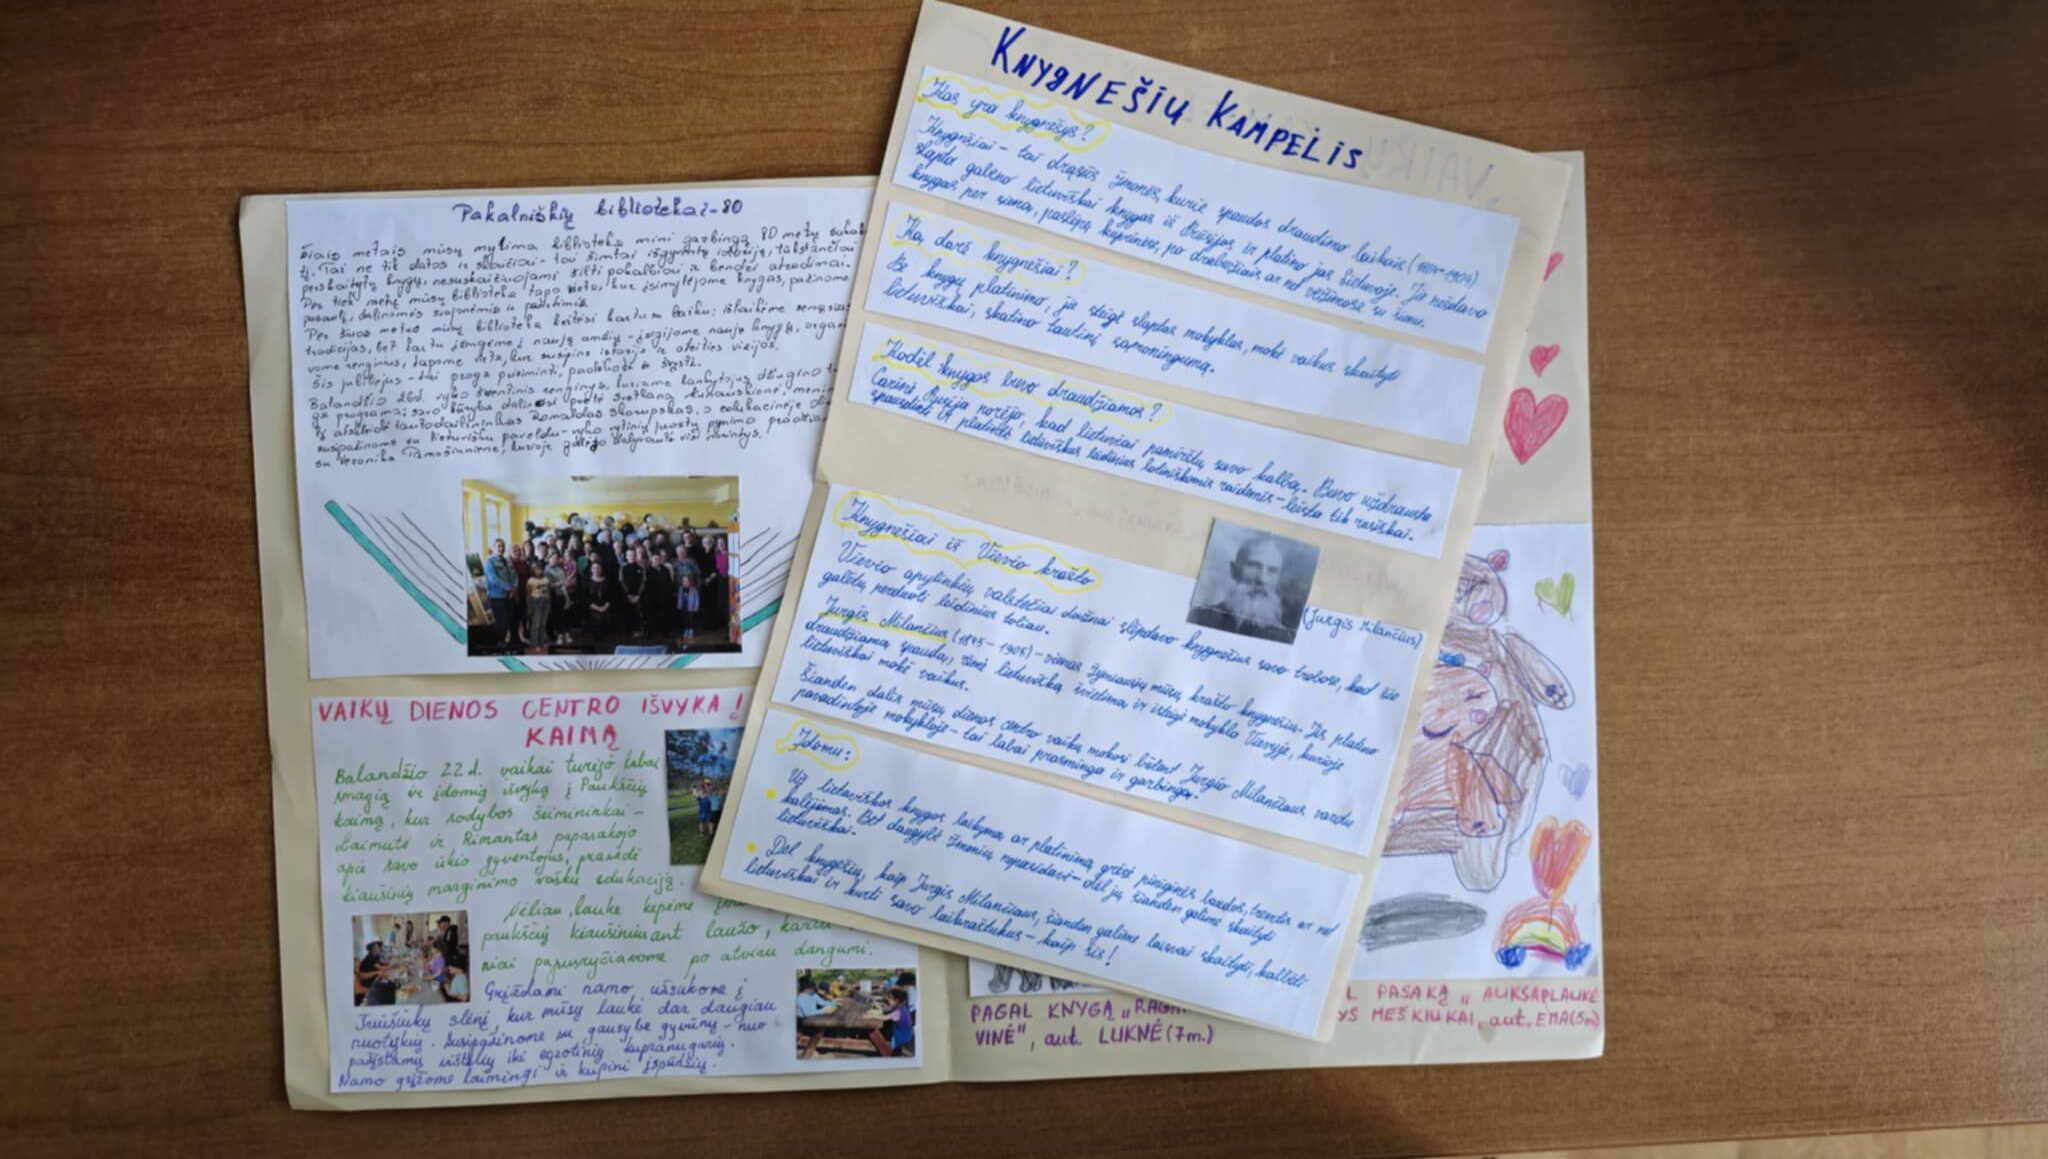 Pakalniškių bibliotekai-80
Šiais metais mūsų mylima biblioteka mini garbingą 80 metų sukak
tį. Tai ne tik datos ir skaičiai - tai šimtai išgyventų istorijų, tūkstančiai
perskaitytų knygų, nesuskaičiuojami šilti pokalbiai ir bendri atradimai.
Per tiek metų mūsų biblioteka tapo vieta, kur įsimylėjome knygas, pažinome
pasaulį, dalinomės svajonėmis ir patirtimis.
Per šiuos metus mūsų biblioteka keitėsi kartu su laiku: išlaikėme senąsias
tradicijas, bet kartu įžengėme į naują amžių - įsigijome naujų knygų, organi
vome renginius, tapome vieta, kur susipina istorija ir ateities vizijos.
Šis jubiliejus - tai proga prisiminti, padėkoti ir švęsti.
Balandžio 26d. vyko šventinis renginys, kuriame lankytojus džiugino
programa: savo kūryba dalinosi poetė Svetlana Kunauskienė, menin
tį atskleidė tautodailininkas Romaldas Skorupskas, o edukacinėje
susipažinome su lietuvišku paveldu - vyko vytinių juostų pynimo
su Veronika Tamošiūniene, kurioje galėjo dalyvauti visi norintys.
VAIKŲ DIENOS CENTRO IŠVYKA Į
KAIMĄ
Balandžio 22 d. vaikai turėjo labai
smagią ir įdomią išvyką į Paukščių
kaimą, kur sodybos šeimininkai -
Laimutė ir Rimantas papasakojo
apie savo ūkio gyventojus, pravedė
kiaušinių marginimo vašku edukaciją.
Vėliau, lauke kepėme
paukščių kiaušinius ant laužo,
niai papusryčiavome po atviru dangumi.
Grįždami namo užsukome į
Triušiukų slėnį, kur mūsų laukė dar daugiau
nuotykių. Susipažinome su gausybe gyvūnų - nuo
pažįstamų vištelių iki egzotinių kupranugarių.
Namo grįžome laimingi ir kupini įspūdžių.
KNYGNEŠIŲ KAMPELIS
Kas yra knygnešys?
Knygnešiai - tai drąsūs žmonės, kurie spaudos draudimo laikais (1864-1904)
slapta gabeno lietuviškai knygas iš Prūsijos ir platino jas Lietuvoje. Jie nešdavo
knygas per sieną, paslėpę kuprinėse, po drabužiais ar net vežimuose su šienu.
Ką darė knygnešiai?
Be knygų platinimo, jie steigė slaptas mokyklas, mokė vaikus skaityti
lietuviškai, skatino tautinį sąmoningumą.
Kodėl knygos buvo draudžiamos?
Carinė Rusija norėjo, kad lietuviai pamirštų savo kalbą. Buvo uždrausta
spausdinti ir platinti lietuviškus leidinius lotiniškomis raidėmis - leista tik rusiškai.
Knygnešiai iš Vievio krašto
Vievio apylinkių valstiečiai dažnai slėpdavo knygnešius savo trobose, kad šie
galėtų perduoti leidinius toliau.
(Jurgis Milančius)
Jurgis Milančius (1845-1905) - vienas žymiausių mūsų krašto knygnešių. Jis platino
draudžiamą spaudą, rėmė lietuvišką švietimą ir įsteigė mokyklą Vievyje, kurioje
lietuviškai mokė vaikus.
Šiandien dalis mūsų dienos centro vaikų mokosi būtent Jurgio Milančiaus vardu
pavadintoje mokykloje - tai labai prasminga ir garbinga.
Įdomu:
Už lietuviškos knygos laikymą ar platinimą grėsė piniginės baudos, tremtis ar net
kalėjimas. Bet daugybė žmonių nepasidavė - dėl jų šiandien galime skaityti
lietuviškai.
Dėl knygnešių, kaip Jurgis Milančiaus, šiandien galime laisvai skaityti, kalbėti
lietuviškai ir kurti savo laikraštukus - kaip šis!
PAGAL KNYGĄ
VINĖ", aut. LUKNĖ (7m.)
PASAKĄ „AUKSAPLAUKĖ
MEŠKIUKAI, aut. EMA (5m)